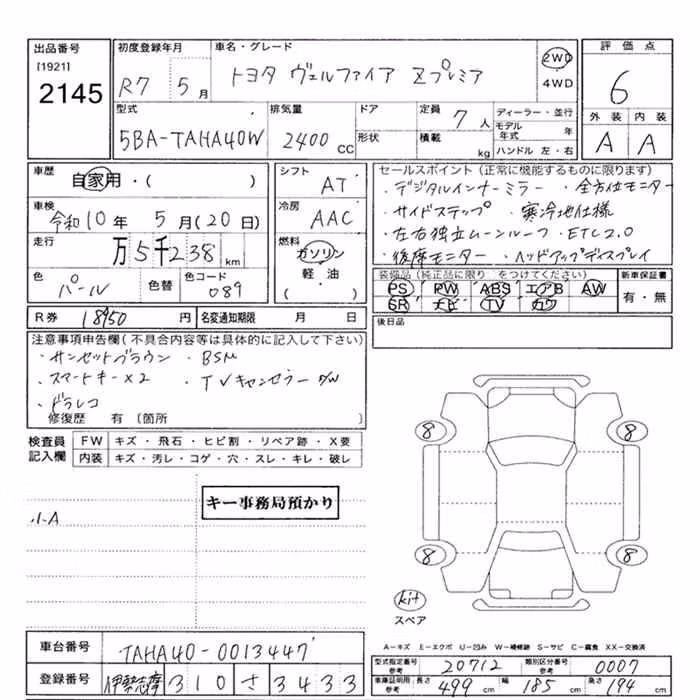 出品番号
[1921]
2145
初度登録年月
R7 5月
車名・グレード
トヨタ ヴェルファイア Zプレミア
2WD
4WD
評価点
6
外装 内装
A A
型式
5BA-TAHA40W
排気量
2400 CC
ドア
形状
定員 7人
積載 kg
ディーラー・並行
モデル年式 年
ハンドル 左・右
車歴
自家用・( )
車検
令和10年 5月(20日)
走行
万5千238km
色
パール
色替
色コード
089
シフト
AT
冷房
AAC
燃料
ガソリン
軽・油
( )
セールスポイント(正常に機能するものに限ります)
・デジタルインナーミラー ・全方位モニター
・サイドステップ ・寒冷地仕様
・左右独立ムーンルーフ ・ETC2.0
・後席モニター ・ヘッドアップディスプレイ
装備品(純正品に限り をつけてください)
PS PW ABS エアB AW
SR ナビ TV カワ
新車保証書
有・無
R券 18950 円 名変通知期限 月 日
後日品
注意事項申告欄(不具合内容等は具体的に記入して下さい)
・サンセットブラウン ・BSM
・スマートキー×2 ・TVキャンセラー
・ドラレコ
修復歴 有 〔箇所 〕
検査員記入欄
FW キズ・飛石・ヒビ割・リペア跡・X要
内装 キズ・汚レ・コゲ・穴・スレ・キレ・破レ
キー事務局預かり
小A
8 8
8 8
kit
スペア
A-キズ E-エクボ U-凹み W-補修跡 S-サビ C-腐食 XX-交換済
車台番号
TAHA40-0013447
登録番号
伊勢志摩 310 さ 3433
型式指定番号 参考 20712 類別区分番号 参考 0007
車庫証明用 参考 長さ 499cm 幅 185cm 高さ 194cm